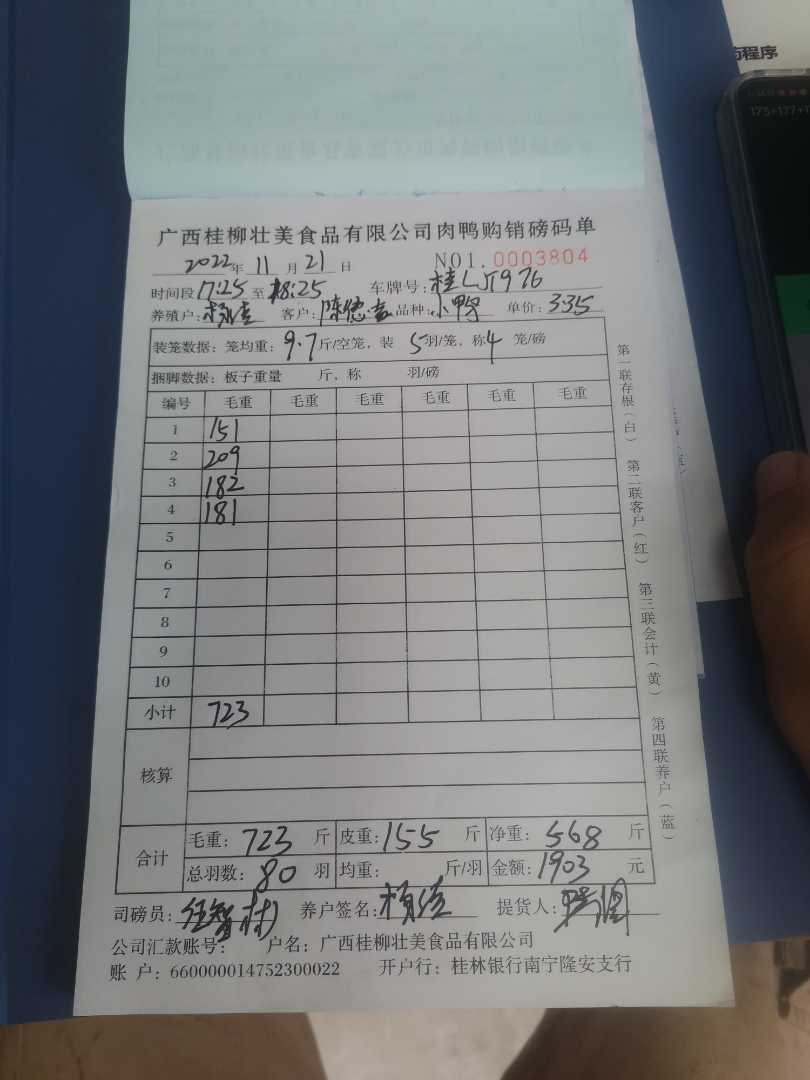 药程序
175+177+1
广西桂柳壮美食品有限公司肉鸭购销磅码单
2022年 11 月 21 日 NO1.0003804
时间段17:25至18:25 车牌号:桂LJ1976
养殖户: 客户: 品种:小鸭 单价:3.35
装笼数据：笼均重：9.7斤/空笼，装 5羽/笼，称4 笼/磅
捆脚数据：板子重量 斤，称 羽/磅
编号 毛重 毛重 毛重 毛重 毛重 毛重
1 151
2 209
3 182
4 181
5
6
7
8
9
10
小计 723
核算
合计 毛重：723 斤 皮重：155 斤 净重：568 斤
总羽数：80 羽 均重： 斤/羽 金额：1903 元
司磅员： 养户签名： 提货人：
公司汇款账号： 户名：广西桂柳壮美食品有限公司
账 户：660000014752300022 开户行：桂林银行南宁隆安支行
第一联存根（白） 第二联客户（红） 第三联会计（黄） 第四联养户（蓝）